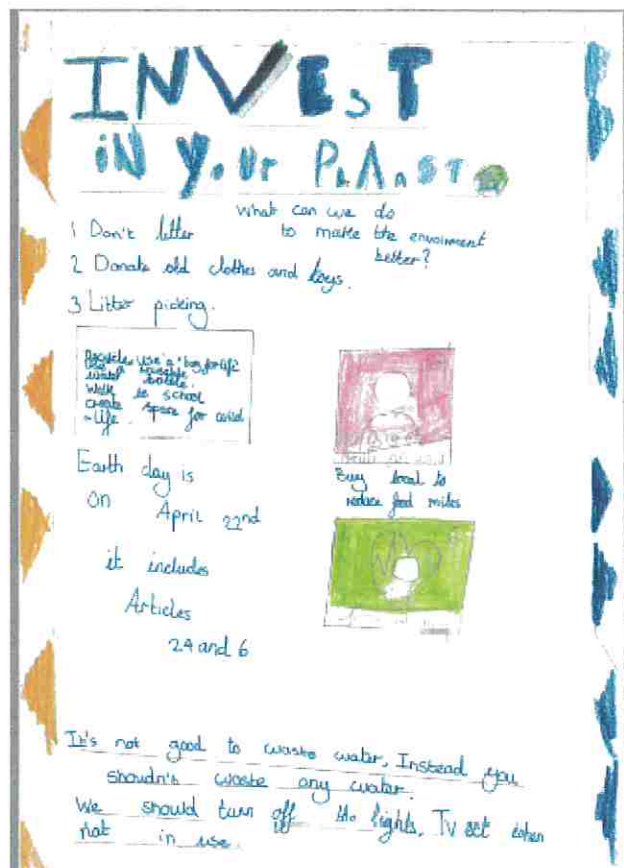 INVEST
iN YOUr PLAnET
what can we do
to make the enviorment
better?
1 Don't litter
2 Donate old clothes and toys.
3 Litter picking.
Recycle. use a "bag for life"
use a reusable
water bottle.
walk to school
create space for wild
-life.
Earth day is
on April 22nd
it includes
Articles
24 and 6
Buy local to
reduce food miles
It's not good to waste water. Instead you
shouldn't waste any water.
We should turn off the lights, Tv ect when
not in use